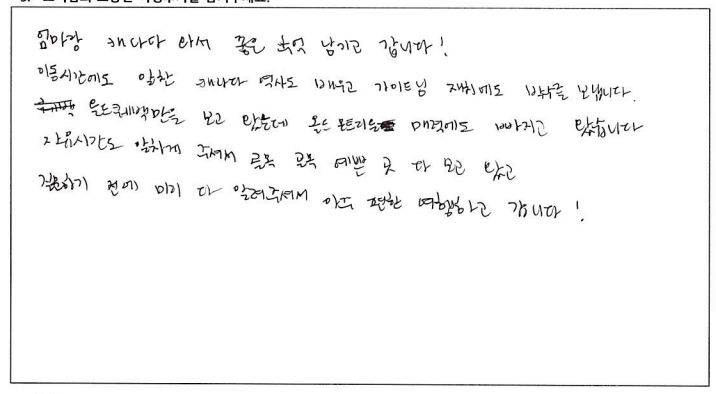 엄마랑 캐나다 와서 좋은 추억 남기고 갑니다!
이동시간에도 알찬 캐나다 역사도 배우고 가이드님 재치에도 박수를 보냅니다.
올드퀘백만을 보고 왔는데 올드 몬트리올 매력에도 빠지고 왔습니다
자유시간도 알차게 주셔서 골목 골목 예쁜 곳 다 보고 왔고
질문하기 전에 미리 다 알려주셔서 아주 편한 여행하고 갑니다!